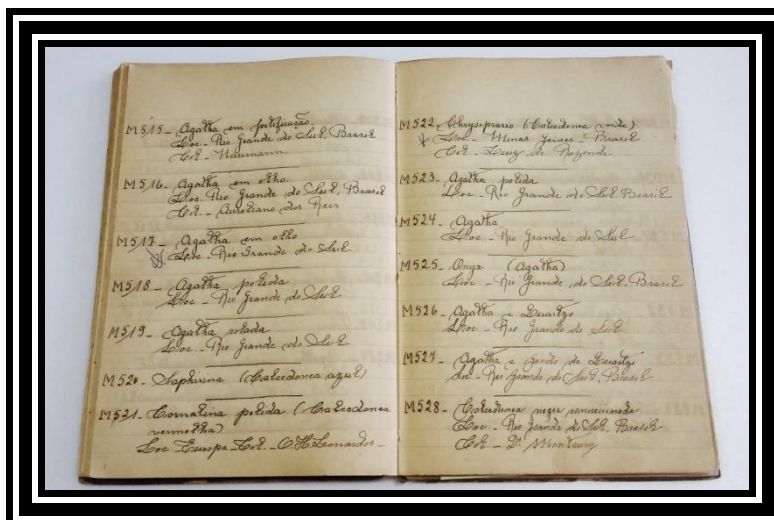 M515_ Agatha em fortificação.
Loc_ Rio Grande do Sul, Brasil
Col_ Naumann
M516_ Agatha em olho.
Loc_ Rio Grande do Sul, Brasil
Col_ Aureliano dos Reis
M517_ Agatha em olho
Loc_ Rio Grande do Sul
M518_ Agatha polida
Loc_ Rio Grande do Sul
M519_ Agatha rolada
Loc_ Rio Grande do Sul
M520_ Saphirina (Calcedonea azul)
M521_ Cornalina polida (Calcedonea
vermelha)
Loc Europa_Col._ O.H.Leonardos_
M522_ (Calcedonea verde)
Loc_ Minas Geraes_ Brasil
Col_ Luiz de Rezende
M523_ Agatha polida
Loc_ Rio Grande do Sul Brasil
M524_ Agatha
Loc_ Rio Grande do Sul
M525_ Onyx (Agatha)
Loc_ Rio Grande do Sul, Brasil
M526_ Agatha e Quartzo
Loc_ Rio Grande do Sul
M527_ Agatha e geodo de Quartzo
Loc_ Rio Grande do Sul, Brasil
M528_ Calcedonea negra
Loc_ Rio Grande do Sul, Brasil
Col_ Dr.